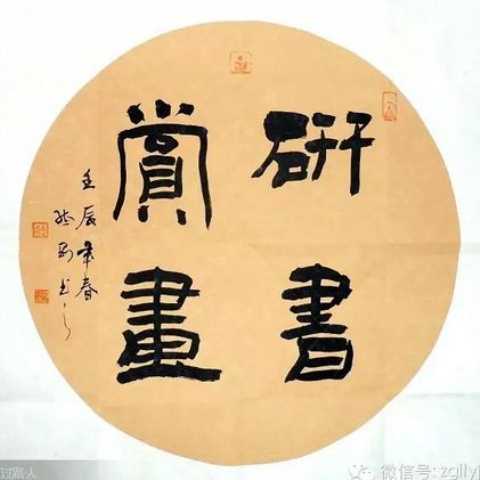 研書
賞畫
壬辰年春
过路人
微信号: zgllyj